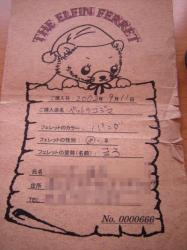 THE ELFIN FERRET
ご購入日 2002年9月11日
ご購入店名
フェレットのカラー パンダ
フェレットの性別 ♂・♀
フェレットの愛称(名前) まろ
氏名
住所
TEL
No. 0000666